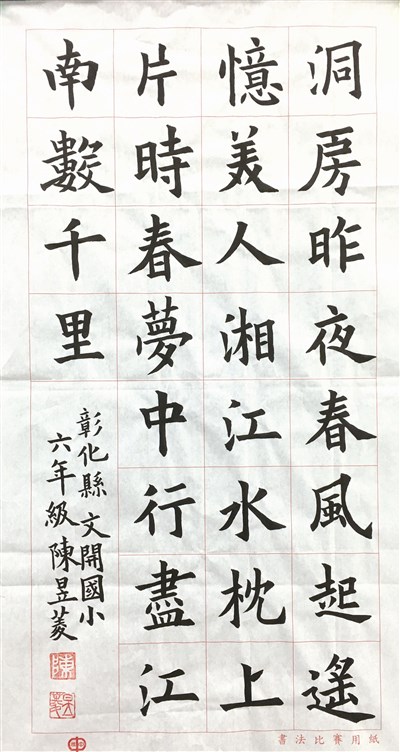 洞房昨夜春風起遙
憶美人湘江水枕上
片時春夢中行盡江
南數千里
彰化縣文開國小
六年級陳昱菱
書法比賽用紙